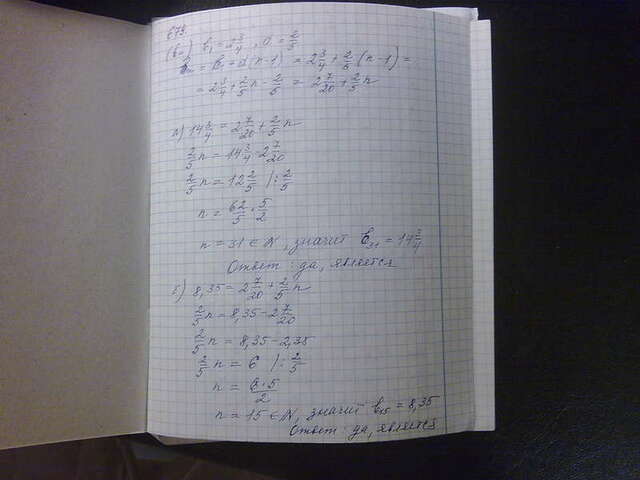 673
(bn) b1 = 2 3/4, d = 2/5
bn = b1 + d(n-1) = 2 3/4 + 2/5 (n-1) =
= 2 3/4 + 2/5 n - 2/5 = 2 7/20 + 2/5 n
а) 14 3/4 = 2 7/20 + 2/5 n
2/5 n = 14 3/4 - 2 7/20
2/5 n = 12 2/5 | : 2/5
n = 62/5 · 5/2
n = 31 ∈ N, значит b31 = 14 3/4
Ответ: да, является
б) 8,35 = 2 7/20 + 2/5 n
2/5 n = 8,35 - 2 7/20
2/5 n = 8,35 - 2,35
2/5 n = 6 | : 2/5
n = 6·5/2
n = 15 ∈ N, значит b15 = 8,35
Ответ: да, является